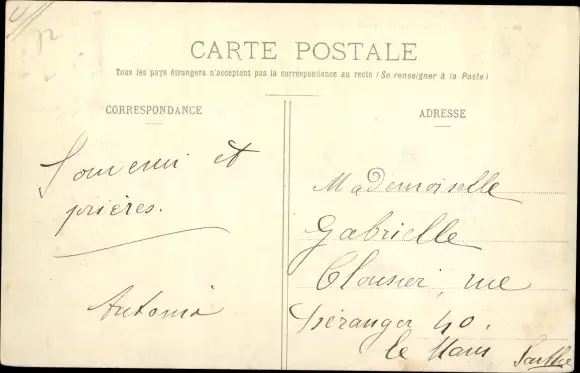 72
CARTE POSTALE
Tous les pays étrangers n'acceptent pas la correspondance au recto (Se renseigner à la Poste)
CORRESPONDANCE
ADRESSE
Souvenir et
prières.
Antonia
Mademoiselle
Gabrielle
Clousier, rue
Béranger 40.
le Mans Sarthe